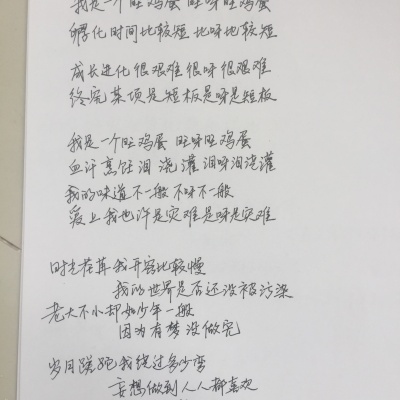 我是一个旺鸡蛋 旺呀旺鸡蛋
孵化时间比较短 比呀比较短
成长进化很艰难 很呀很艰难
终究某项是短板是呀是短板
我是一个旺鸡蛋 旺呀旺鸡蛋
血汗烹饪泪浇灌泪呀泪浇灌
我的味道不一般不呀不一般
爱上我也许是灾难是呀是灾难
时光荏苒我开窍比较慢
我的世界是否还没被污染
老大不小却如少年一般
因为有梦没做完
岁月蹉跎我绕过多少弯
妄想做到人人都喜欢